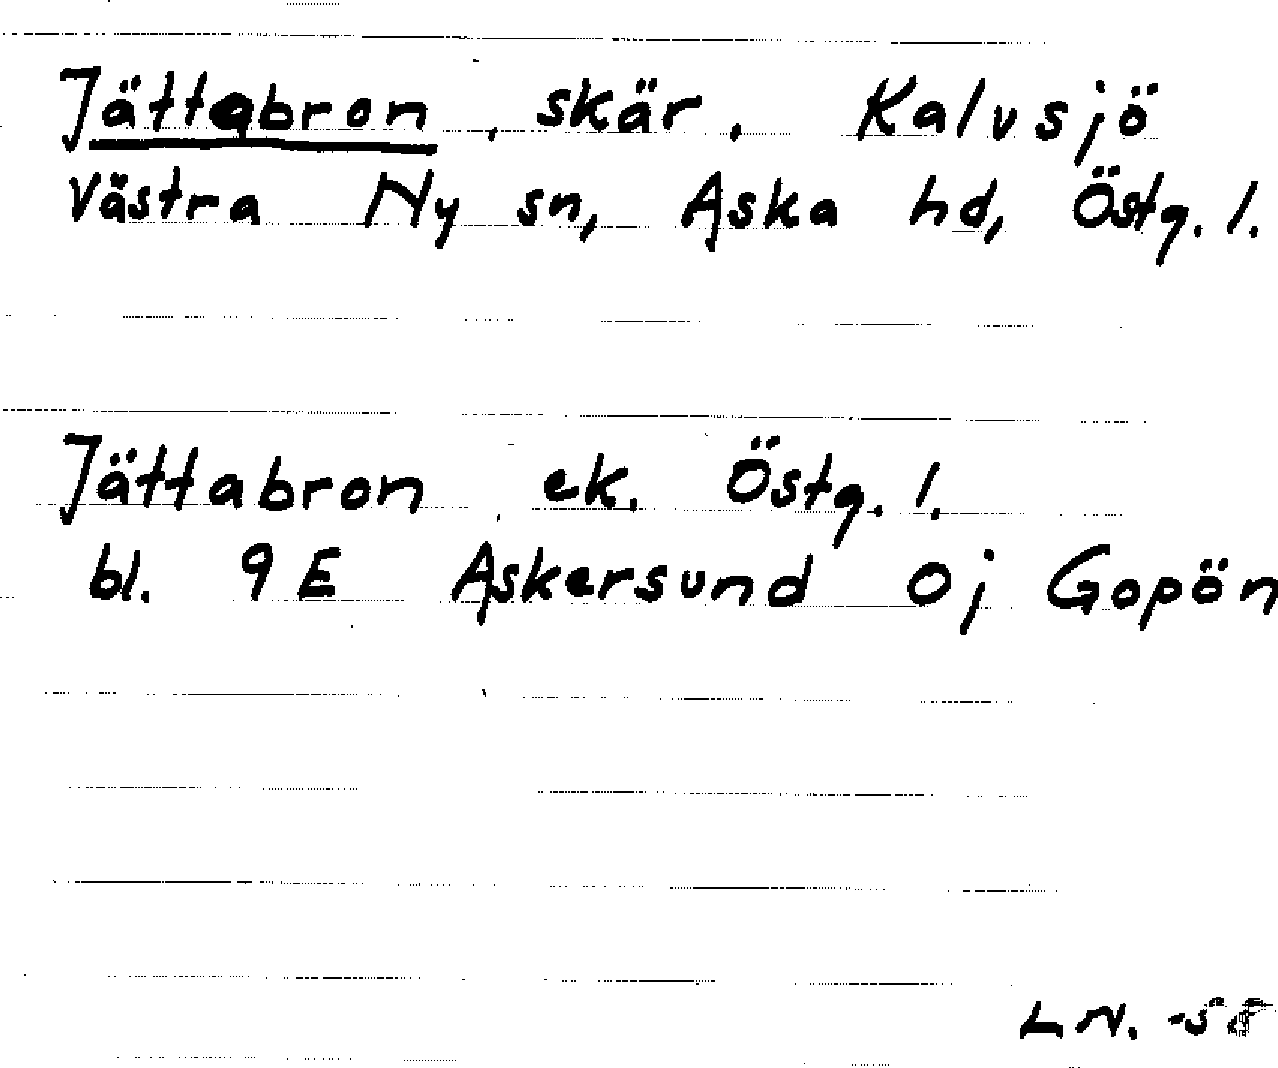 Jättabron, skär. Kalvsjö
Västra Ny sn, Aska hd, Östg. l.
Jättabron ek. Östg. l.
bl. 9 E Askersund 0j Gopön
L N. -58